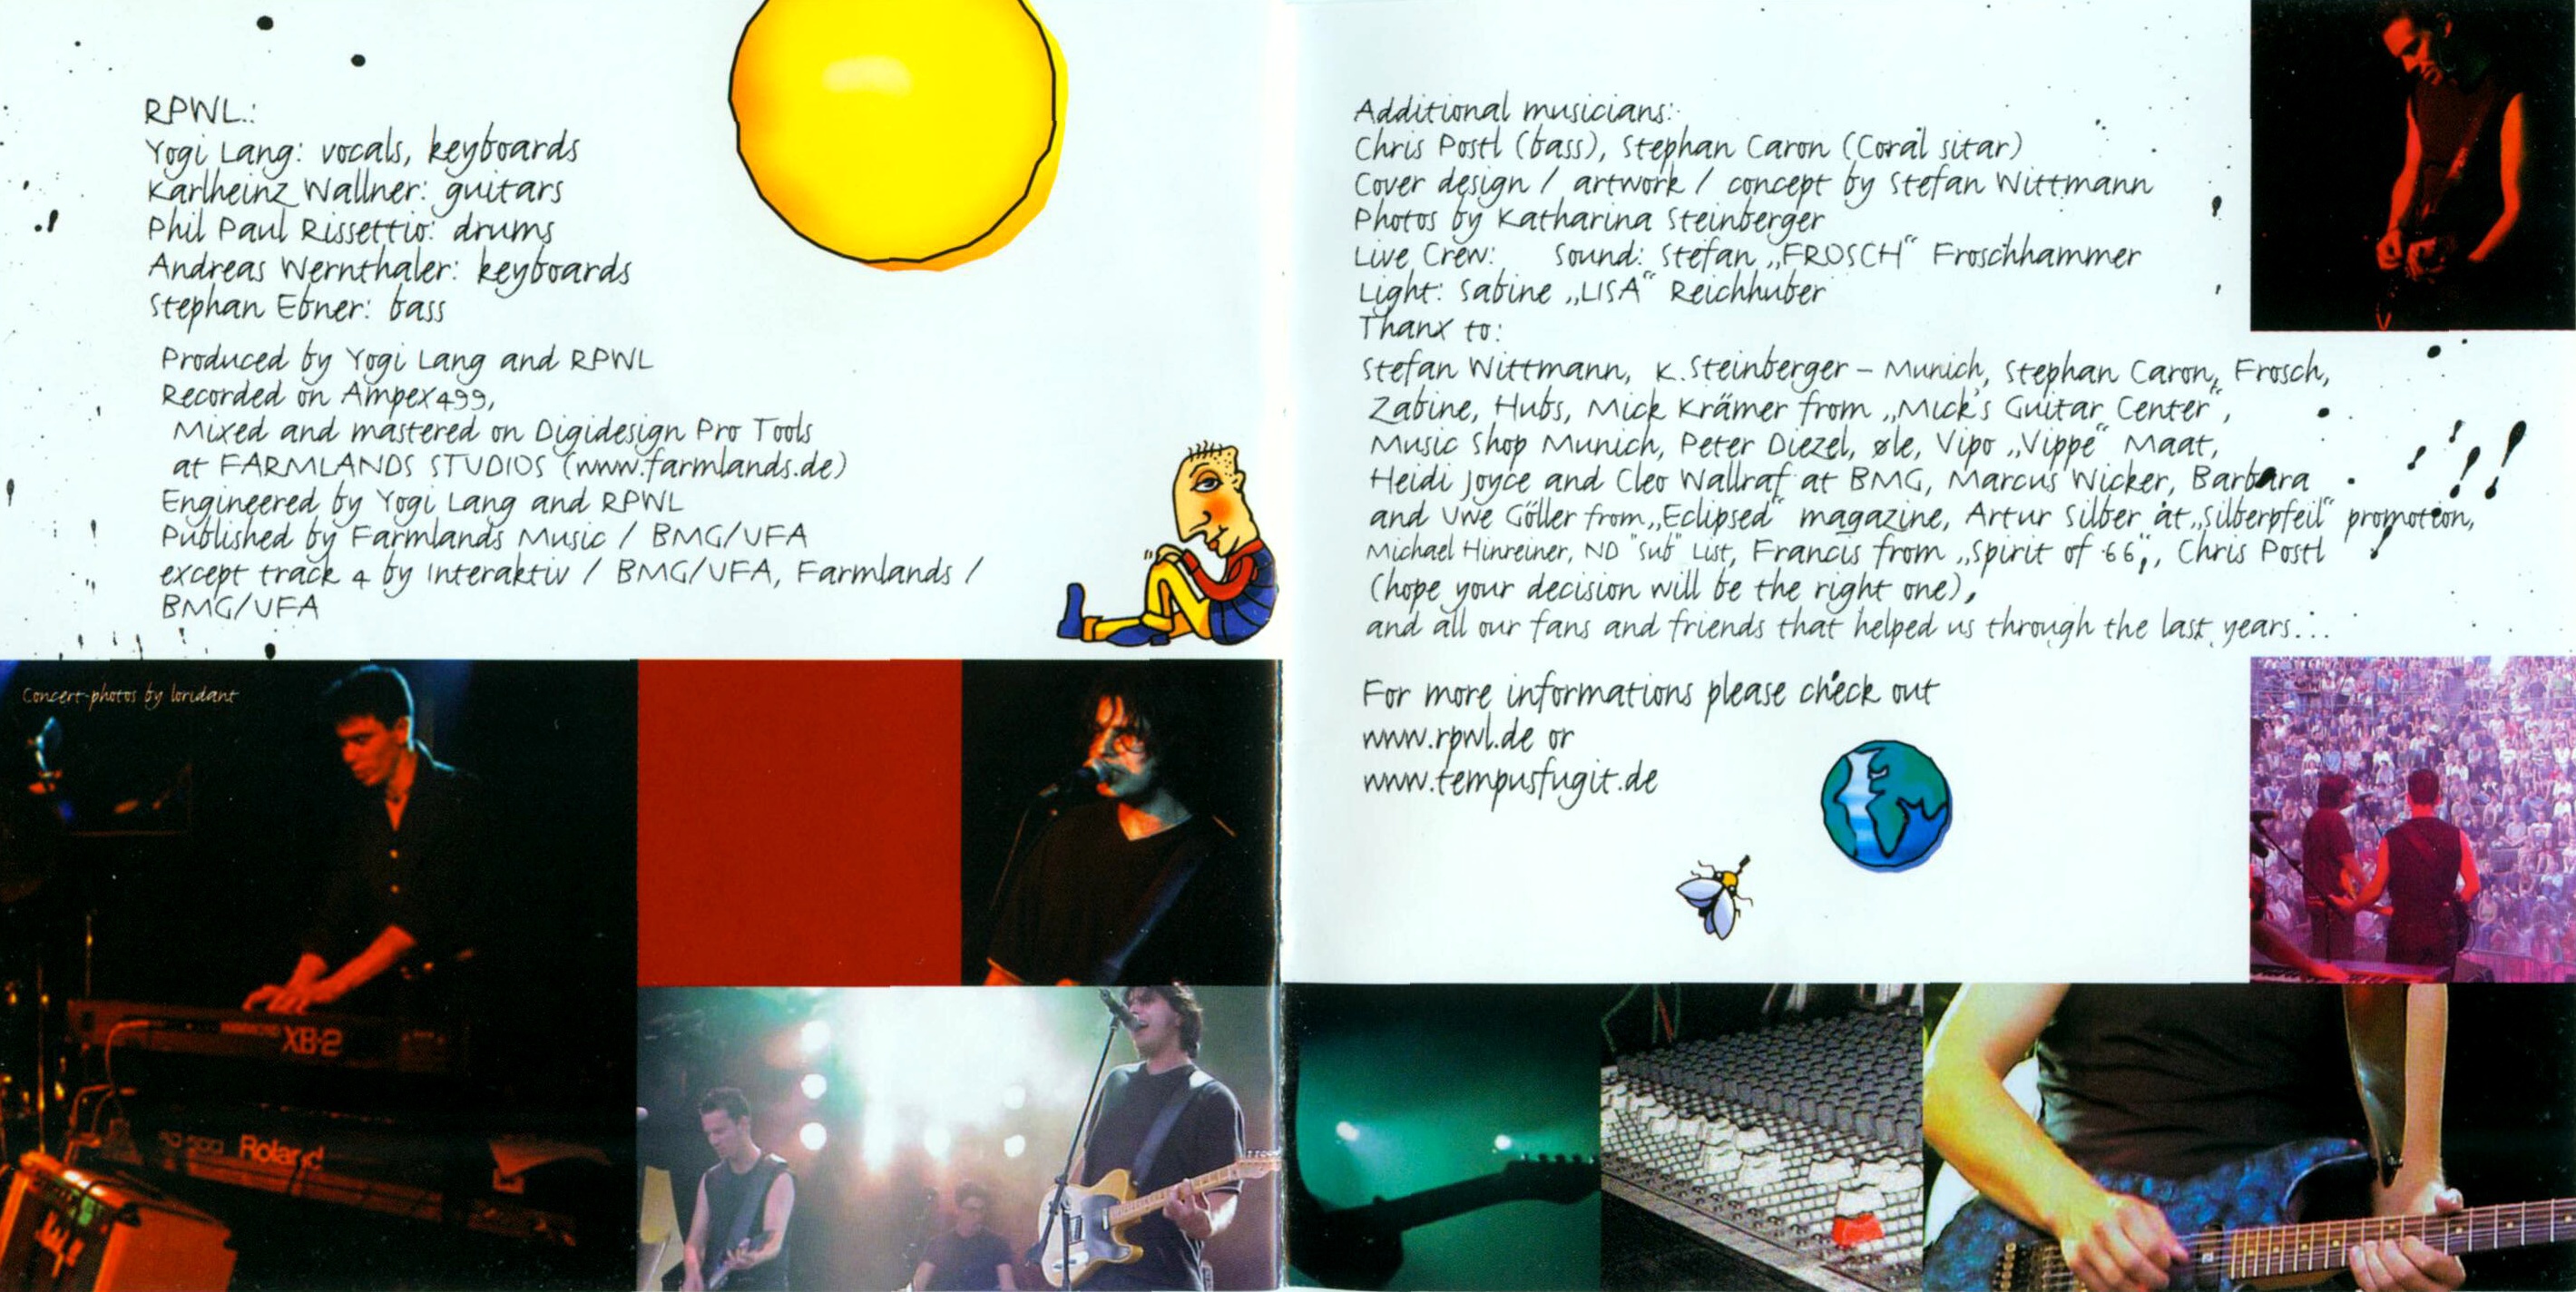 RPWL.:
Yogi Lang: vocals, keyboards
Karlheinz Wallner: guitars
Phil Paul Rissettio: drums
Andreas Wernthaler: keyboards
Stephan Ebner: bass
Produced by Yogi Lang and RPWL
Recorded on Ampex 499,
Mixed and mastered on Digidesign Pro Tools
at FARMLANDS STUDIOS (www.farmlands.de)
Engineered by Yogi Lang and RPWL
Published by Farmlands Music / BMG/UFA
except track 4 by Interaktiv / BMG/UFA, Farmlands /
BMG/UFA
Concert-photos by loridant
XB-2
Roland
Additional musicians:
Chris Postl (bass), Stephan Caron (Coral sitar)
Cover design / artwork / concept by Stefan Wittmann
Photos by Katharina Steinberger
Live Crew: Sound: Stefan „FROSCH“ Froschhammer
Light: Sabine „LISA“ Reichhuber
Thanx to:
Stefan Wittmann, K. Steinberger – Munich, Stephan Caron, Frosch,
Zabine, Hubs, Mick Krämer from „Mick's Guitar Center“,
Music Shop Munich, Peter Diezel, øle, Vipo „Vippe“ Maat,
Heidi Joyce and Cleo Wallraf at BMG, Marcus Wicker, Barbara
and Uwe Göller from „Eclipsed“ magazine, Artur Silber at „Silberpfeil“ promotion,
Michael Hinreiner, ND "Sub" List, Francis from „Spirit of 66“, Chris Postl
(hope your decision will be the right one),
and all our fans and friends that helped us through the last years...
For more informations please check out
www.rpwl.de or
www.tempusfugit.de